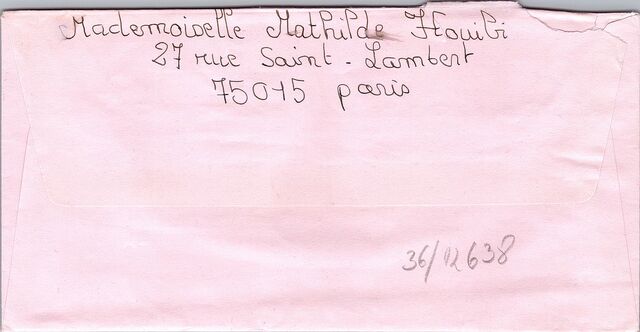 Mademoiselle Mathilde Houibi
27 rue Saint - Lambert
75015 paris
36/12638